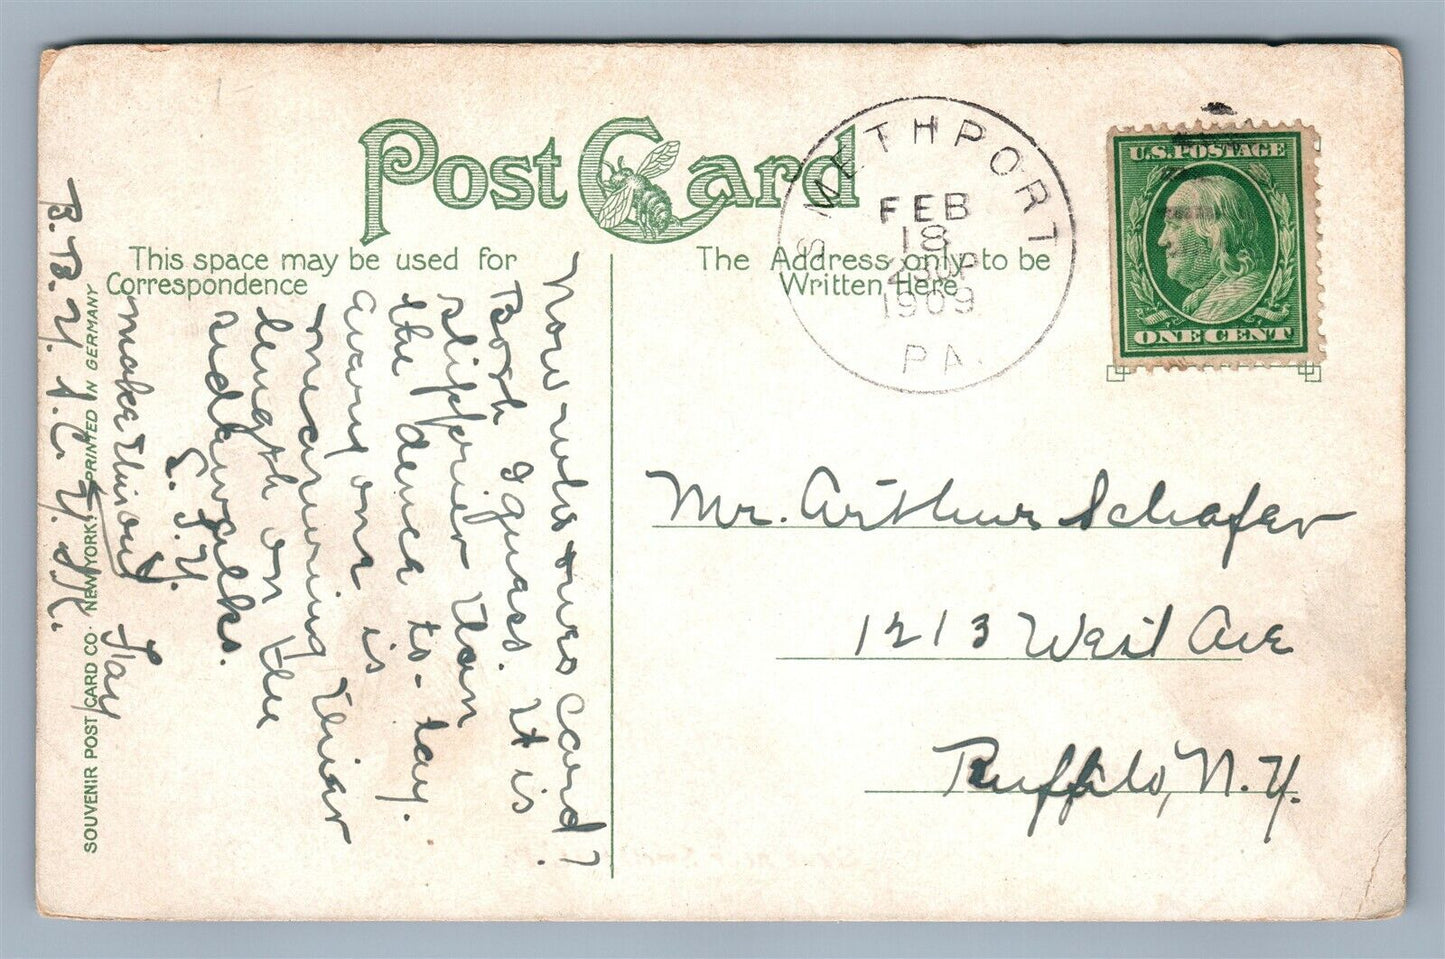 Post Card
This space may be used for
Correspondence
The Address only to be
Written Here
SMETHPORT
FEB
18
1909
PA.
U.S. POSTAGE
ONE CENT
Mr. Arthur Schafer
1213 West Ave
Buffalo, N.Y.
Now who owes card?
Both I guess. It is
slipprier than
the dence to-day.
every one is
measuring thier
length on the
sidewalks.
E. F. Y.
make this out
Fay
B. B. Y. F. C. Y.
SOUVENIR POST CARD CO. NEW YORK. PRINTED IN GERMANY